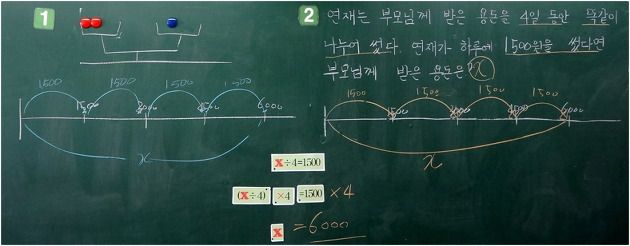 1
1500 1500 1500 1500
1500 3000 4500 6000
x
2 연재는 부모님께 받은 용돈을 4일 동안 똑같이
나누어 썼다. 연재가 하루에 1500원을 썼다면
부모님께 받은 용돈은? x
1500 1500 1500 1500
1500 3000 4500 6000
x
x÷4=1500
(x÷4) ×4 =1500 ×4
x = 6000